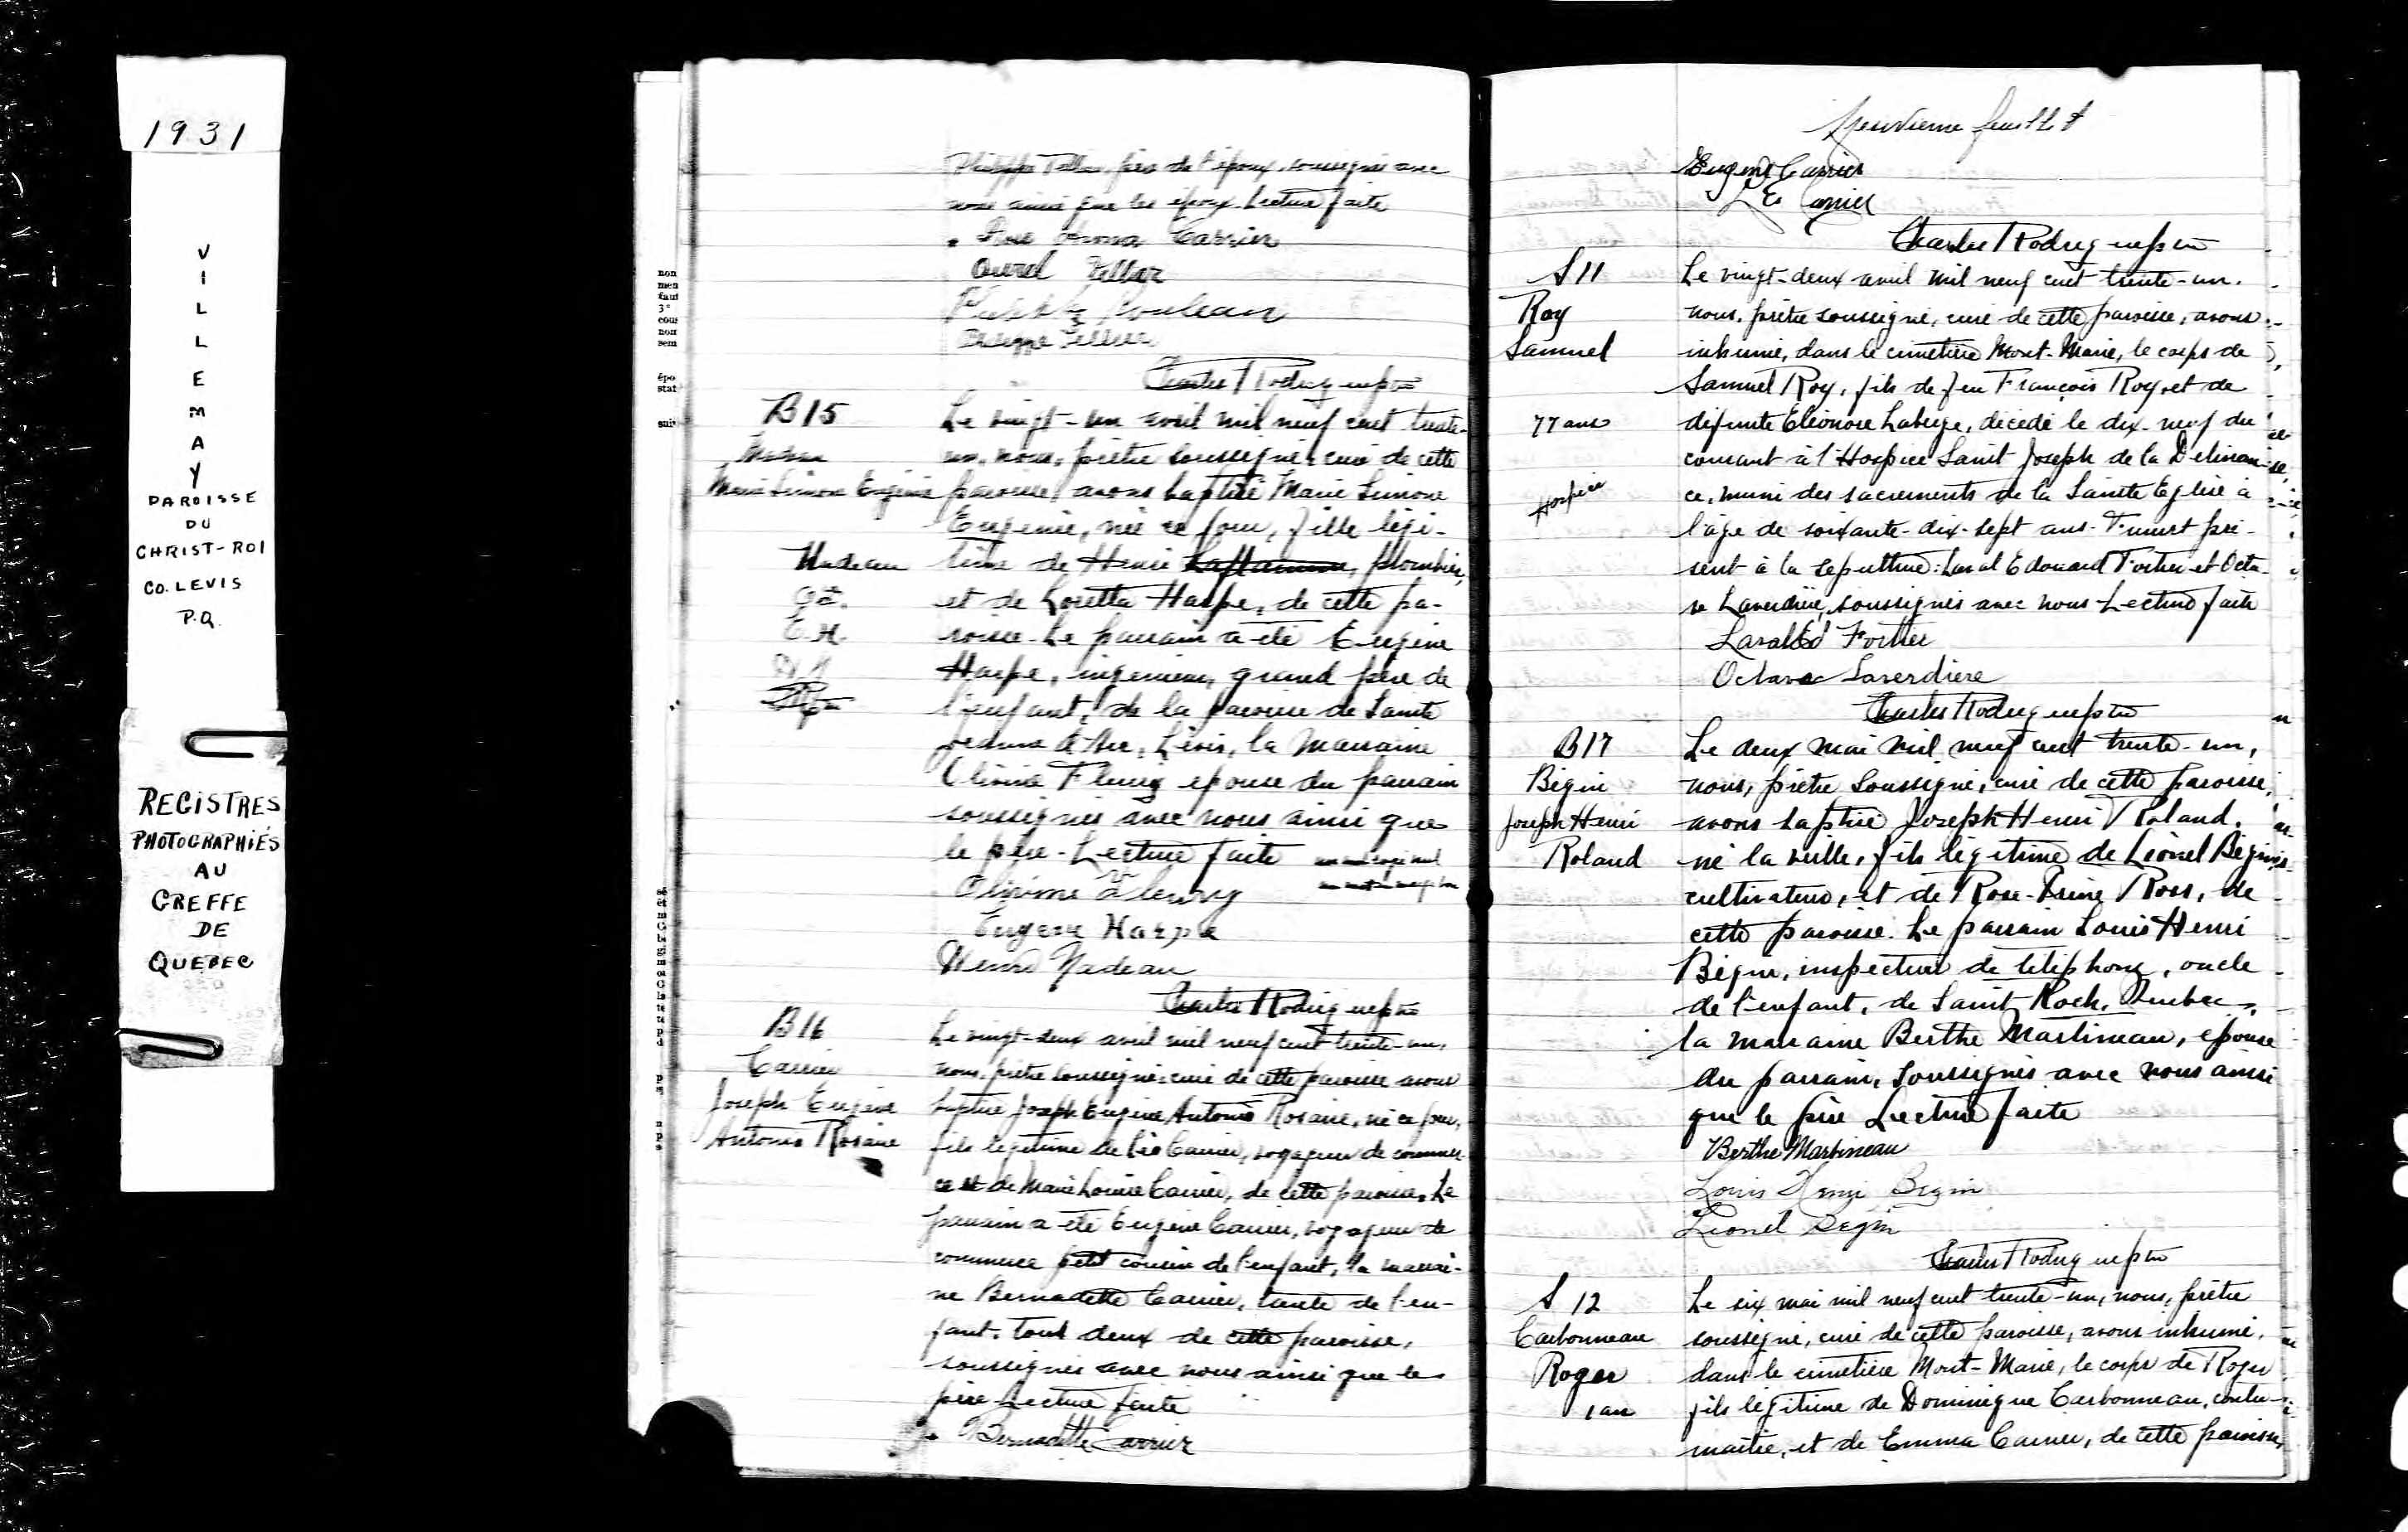 1931
VILLEMAY
PAROISSE
DU
CHRIST-ROI
CO. LEVIS
P.Q.
REGISTRES
PHOTOGRAPHIÉS
AU
GREFFE
DE
QUEBEC
Philippe père de l'époux, soussignés avec
nous ainsi que les époux. Lecture faite
Rose Anna Carrier
Rouleau
Philippe Tellier
Charles Rodrigue ptre
B15
Nadeau
Marie Simone Eugénie
Le vingt-un avril mil neuf cent trente-
un, nous, prêtre soussigné, curé de cette
paroisse, avons baptisé Marie Simone
Eugénie, née ce jour, fille légi-
Nadeau
time de Henri Laflamme, plombier,
et de Loretta Harpe, de cette pa-
E.H.
roisse. Le parrain a été Eugène
Harpe, ingénieur, grand père de
l'enfant, de la paroisse de Sainte
Jeanne d'Arc, Lévis, la marraine
Olivine Fleury épouse du parrain
soussignés avec nous ainsi que
le père. Lecture faite
Olivine Fleury
Eugène Harpe
Henri Nadeau
Charles Rodrigue ptre
B16
Carrier
Joseph Eugène
Antonio Rosaire
Le vingt-deux avril mil neuf cent trente-un,
nous, prêtre soussigné, curé de cette paroisse avons
baptisé Joseph Eugène Antonio Rosaire, né ce jour,
fils légitime de Léo Carrier, voyageur de commer-
ce et de Marie Louise Carrier, de cette paroisse. Le
parrain a été Eugène Carrier, voyageur de
commerce petit cousin de l'enfant, la marrai-
ne Bernadette Carrier, tante de l'en-
fant. Tout deux de cette paroisse,
soussignés avec nous ainsi que le
père. Lecture faite
Bernadette Carrier
feuillet
Eugène Carrier
Carrier
Charles Rodrigue ptre
S 11
Roy
Samuel
77 ans
Hospice
Le vingt-deux avril mil neuf cent trente-un.
nous, prêtre soussigné, curé de cette paroisse, avons
inhumé, dans le cimetière Mont-Marie, le corps de
Samuel Roy, fils de feu François Roy et de
défunte Eléonore Laberge, décédé le dix-neuf du
courant à l'Hospice Saint Joseph de la Délivran-
ce, muni des sacrements de la Sainte Eglise à
l'âge de soixante-dix-sept ans. Furent pré-
sent à la sépulture: Laval Edouard Fortier et Octa-
ve Laverdière, soussignés avec nous. Lecture faite
Laval Ed Fortier
Octave Laverdiere
Charles Rodrigue ptre
B17
Bégin
Joseph Henri
Roland
Le deux mai mil neuf cent trente-un,
nous, prêtre soussigné, curé de cette paroisse,
avons baptisé Joseph Henri Roland.
né la veille, fils légitime de Lionel Bégin,
cultivateur, et de Rose- Ross, de
cette paroisse. Le parrain Louis Henri
Bégin, inspecteur de téléphone, oncle
de l'enfant, de Saint Roch, Québec,
la marraine Berthe Martineau, épouse
du parrain, soussignés avec nous ainsi
que le père Lecture faite
Berthe Martineau
Louis Henri Begin
Lionel Begin
Charles Rodrigue ptre
S 12
Carbonneau
Roger
1 an
Le six mai mil neuf cent trente-un, nous, prêtre
soussigné, curé de cette paroisse, avons inhumé,
dans le cimetière Mont-Marie, le corps de Roger
fils légitime de Dominique Carbonneau, contre-
maître, et de Emma Carrier, de cette paroisse,